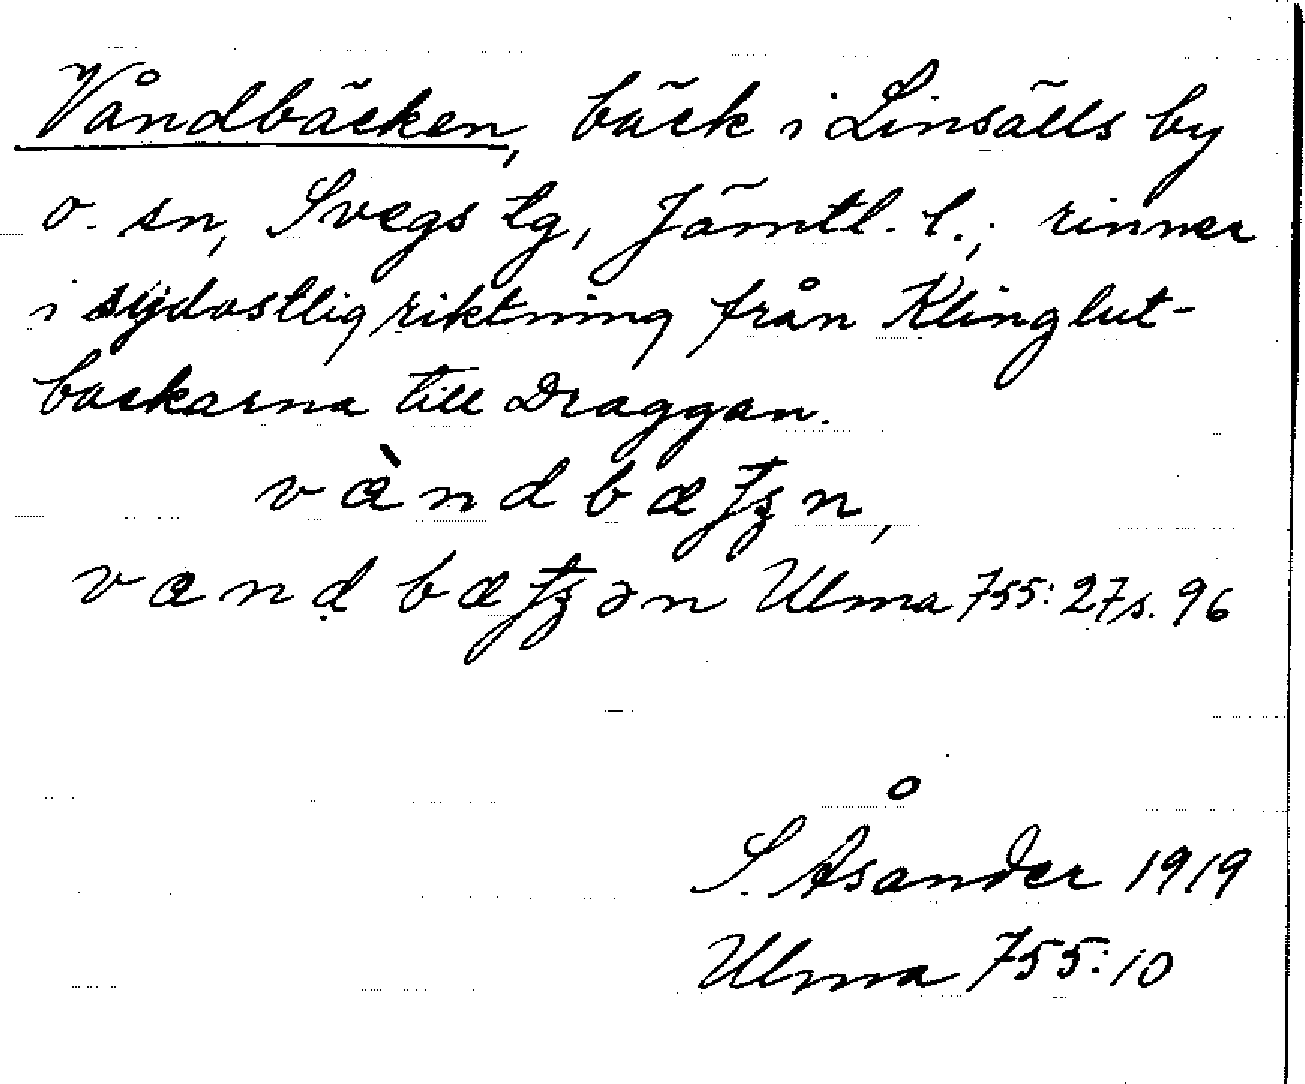 Våndbäcken, bäck i Linsälls by
o. sn, Svegs tg, Jämtl. l.; rinner
i sydostlig riktning från Klinglut-
backarna till Draggan.
vàndbæ
vand bæ ən Ulma 755:27 s. 96
S. Åsander 1919
Ulma 755:10